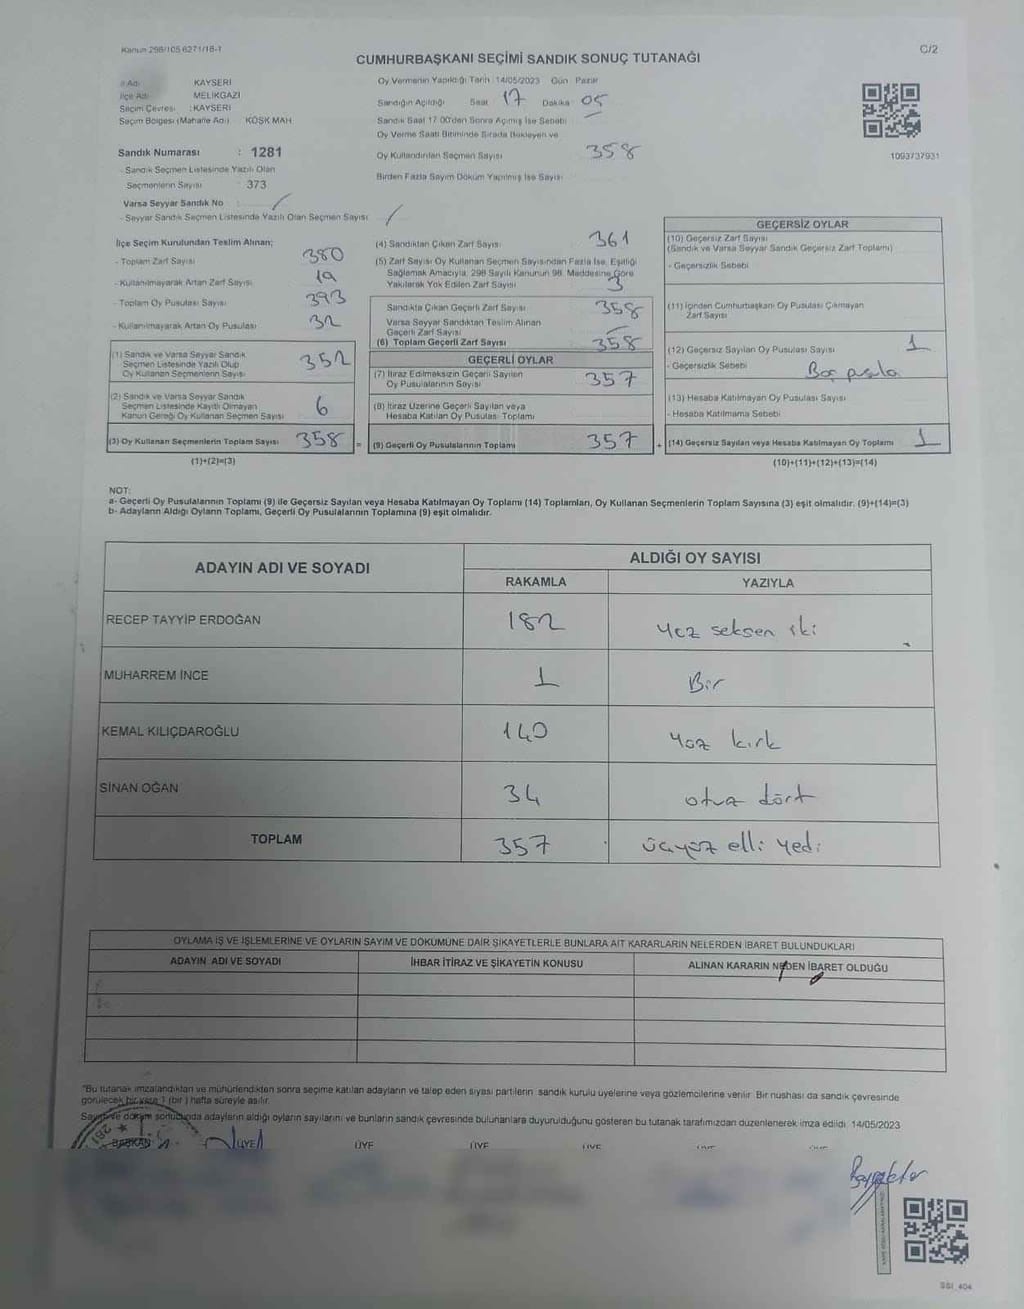 Kanun 298/105 6271/18-1
C/2
CUMHURBAŞKANI SEÇİMİ SANDIK SONUÇ TUTANAĞI
İl Adı KAYSERİ
İlçe Adı MELİKGAZİ
Seçim Çevresi : KAYSERİ
Seçim Bölgesi (Mahalle Adı) KÖŞK MAH
Oy Vermenin Yapıldığı Tarih 14/05/2023 Gün Pazar
Sandığın Açıldığı Saat 17 Dakika 05
Sandık Saat 17.00'den Sonra Açılmış İse Sebebi
Oy Verme Saati Bitiminde Sırada Bekleyen ve
Oy Kullandırılan Seçmen Sayısı 358
Birden Fazla Sayım Döküm Yapılmış İse Sayısı
1093737931
Sandık Numarası : 1281
- Sandık Seçmen Listesinde Yazılı Olan
Seçmenlerin Sayısı 373
Varsa Seyyar Sandık No
- Seyyar Sandık Seçmen Listesinde Yazılı Olan Seçmen Sayısı
İlçe Seçim Kurulundan Teslim Alınan;
- Toplam Zarf Sayısı 380
- Kullanılmayarak Artan Zarf Sayısı 19
- Toplam Oy Pusulası Sayısı 393
- Kullanılmayarak Artan Oy Pusulası 32
(1) Sandık ve Varsa Seyyar Sandık
Seçmen Listesinde Yazılı Olup
Oy Kullanan Seçmenlerin Sayısı 352
(2) Sandık ve Varsa Seyyar Sandık
Seçmen Listesinde Kayıtlı Olmayan
Kanun Gereği Oy Kullanan Seçmen Sayısı 6
(3) Oy Kullanan Seçmenlerin Toplam Sayısı 358 =
(1)+(2)=(3)
(4) Sandıktan Çıkan Zarf Sayısı 361
(5) Zarf Sayısı Oy Kullanan Seçmen Sayısından Fazla İse, Eşitliği
Sağlamak Amacıyla, 298 Sayılı Kanunun 98. Maddesine Göre
Yakılarak Yok Edilen Zarf Sayısı 3
Sandıkta Çıkan Geçerli Zarf Sayısı 358
Varsa Seyyar Sandıktan Teslim Alınan
Geçerli Zarf Sayısı
(6) Toplam Geçerli Zarf Sayısı 358
GEÇERLİ OYLAR
(7) İtiraz Edilmeksizin Geçerli Sayılan
Oy Pusulalarının Sayısı 357
(8) İtiraz Üzerine Geçerli Sayılan veya
Hesaba Katılan Oy Pusulası Toplamı
(9) Geçerli Oy Pusulalarının Toplamı 357 +
GEÇERSİZ OYLAR
(10) Geçersiz Zarf Sayısı
(Sandık ve Varsa Seyyar Sandık Geçersiz Zarf Toplamı)
- Geçersizlik Sebebi
(11) İçinden Cumhurbaşkanı Oy Pusulası Çıkmayan
Zarf Sayısı
(12) Geçersiz Sayılan Oy Pusulası Sayısı 1
- Geçersizlik Sebebi Boş pusula
(13) Hesaba Katılmayan Oy Pusulası Sayısı
- Hesaba Katılmama Sebebi
(14) Geçersiz Sayılan veya Hesaba Katılmayan Oy Toplamı 1
(10)+(11)+(12)+(13)=(14)
NOT:
a- Geçerli Oy Pusulalarının Toplamı (9) ile Geçersiz Sayılan veya Hesaba Katılmayan Oy Toplamı (14) Toplamları, Oy Kullanan Seçmenlerin Toplam Sayısına (3) eşit olmalıdır. (9)+(14)=(3)
b- Adayların Aldığı Oyların Toplamı, Geçerli Oy Pusulalarının Toplamına (9) eşit olmalıdır.
ADAYIN ADI VE SOYADI ALDIĞI OY SAYISI
RAKAMLA YAZIYLA
RECEP TAYYİP ERDOĞAN 182 yüz seksen iki
MUHARREM İNCE 1 Bir
KEMAL KILIÇDAROĞLU 140 yüz kırk
SİNAN OĞAN 34 otuz dört
TOPLAM 357 üçyüz elli yedi
OYLAMA İŞ VE İŞLEMLERİNE VE OYLARIN SAYIM VE DÖKÜMÜNE DAİR ŞİKAYETLERLE BUNLARA AİT KARARLARIN NELERDEN İBARET BULUNDUKLARI
ADAYIN ADI VE SOYADI İHBAR İTİRAZ VE ŞİKAYETİN KONUSU ALINAN KARARIN NEDEN İBARET OLDUĞU
"Bu tutanak imzalandıktan ve mühürlendikten sonra seçime katılan adayların ve talep eden siyasi partilerin sandık kurulu üyelerine veya gözlemcilerine verilir. Bir nushası da sandık çevresinde
görülecek bir yere 1 (bir) hafta süreyle asılır.
Sayım ve döküm sonucunda adayların aldığı oyların sayılarını ve bunların sandık çevresinde bulunanlara duyurulduğunu gösteren bu tutanak tarafımızdan düzenlenerek imza edildi. 14/05/2023
BAŞKAN ÜYE ÜYE ÜYE ÜYE
SSİ_404